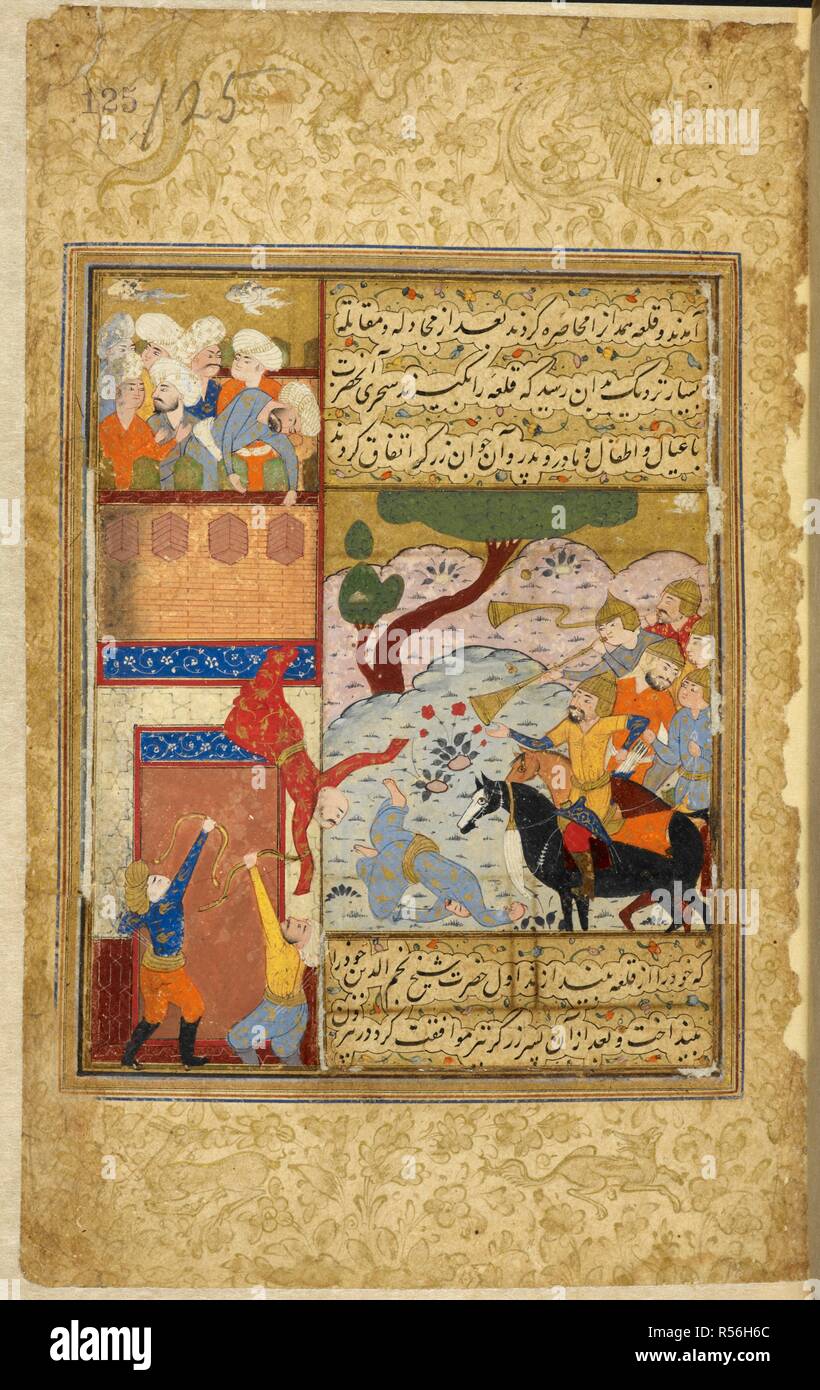 125
125
آمدند و قلعه همدان را محاصره کردند بعد از مجادله و مقابله
بسیار نزدیک بدان رسید که قلعه را بگیرند سحری آنحضرت
با عیال و اطفال و مادر و پدر و آن جوان زرگر اتفاق کردند
که خود را از قلعه بیندازند اول حضرت شیخ نجم الدین خود را
بینداخت و بعد از آن پسر زرگر نیز موافقت کرد در
alamy
Image ID: R56H6C
www.alamy.com